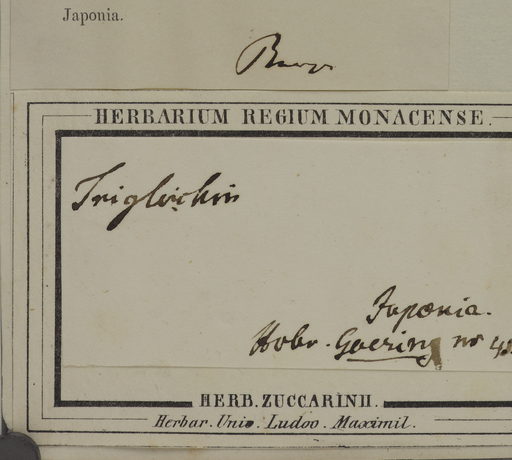 Japonia.
HERBARIUM REGIUM MONACENSE.
Triglochin
Japonia.
Goering no
HERB. ZUCCARINII.
Herbar. Univ. Ludov. Maximil.